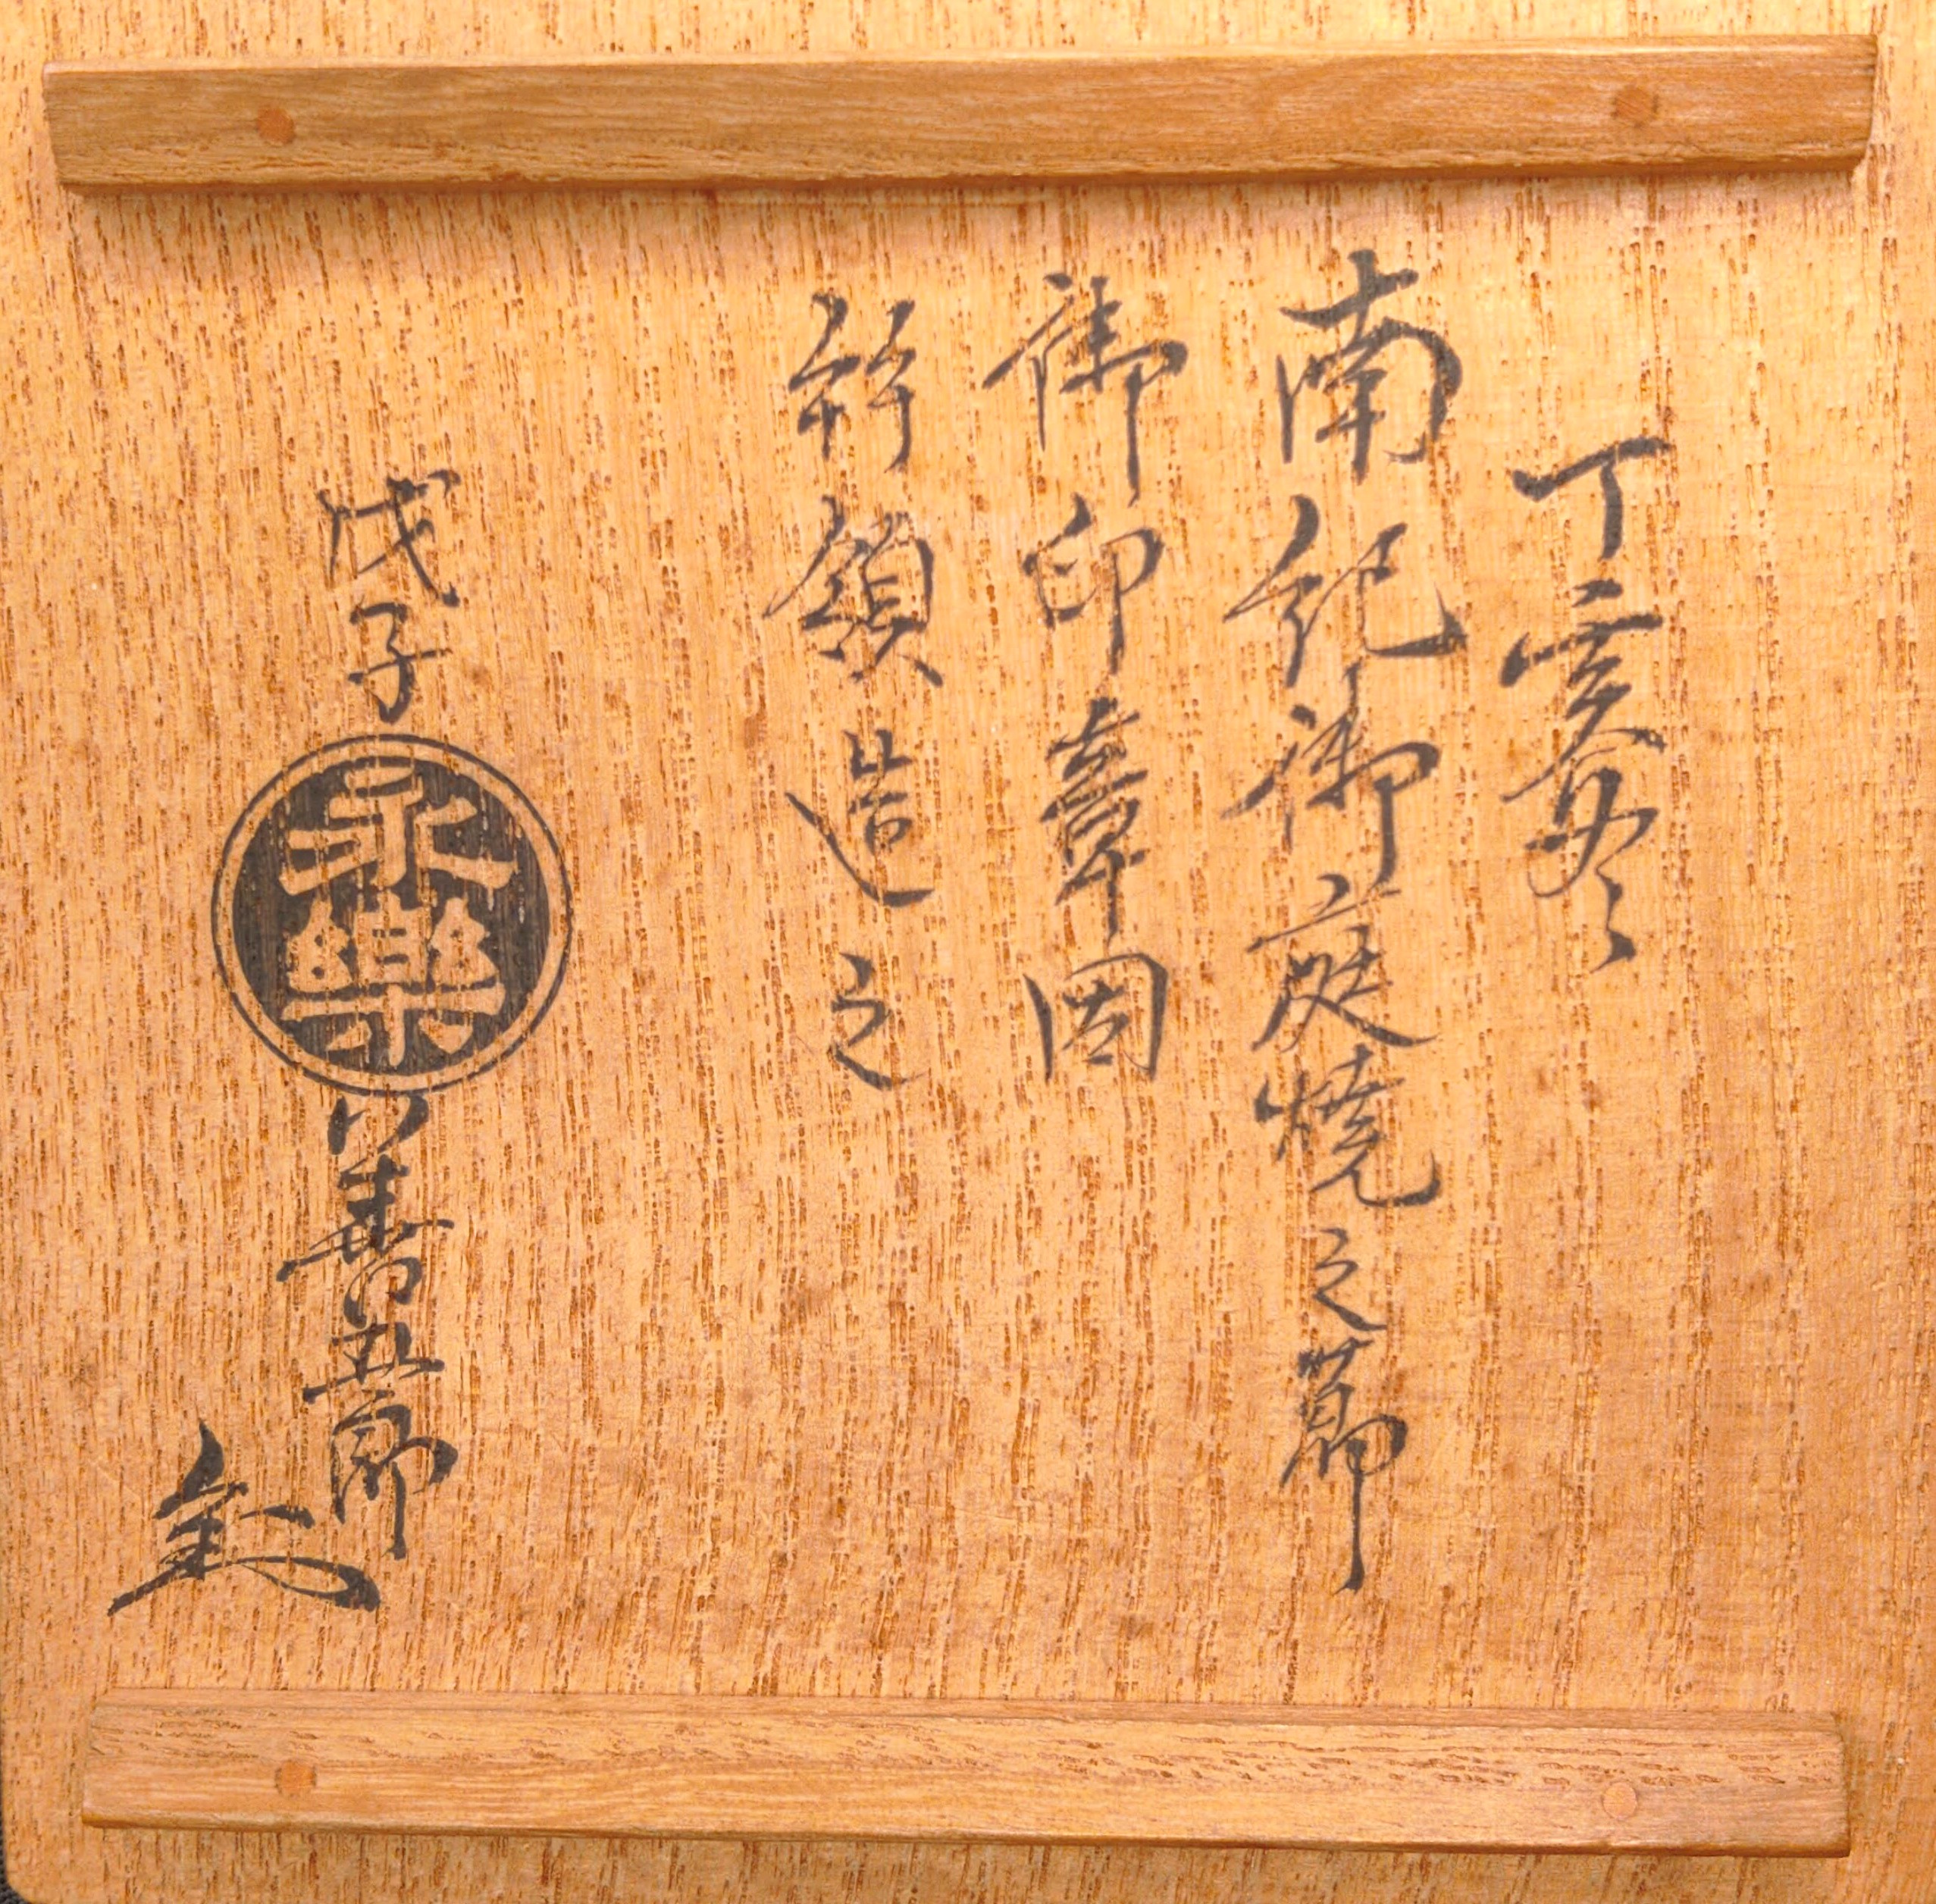 丁亥冬
南紀御庭焼之節
御印章因
拜領造之
戊子
永樂
善五郎